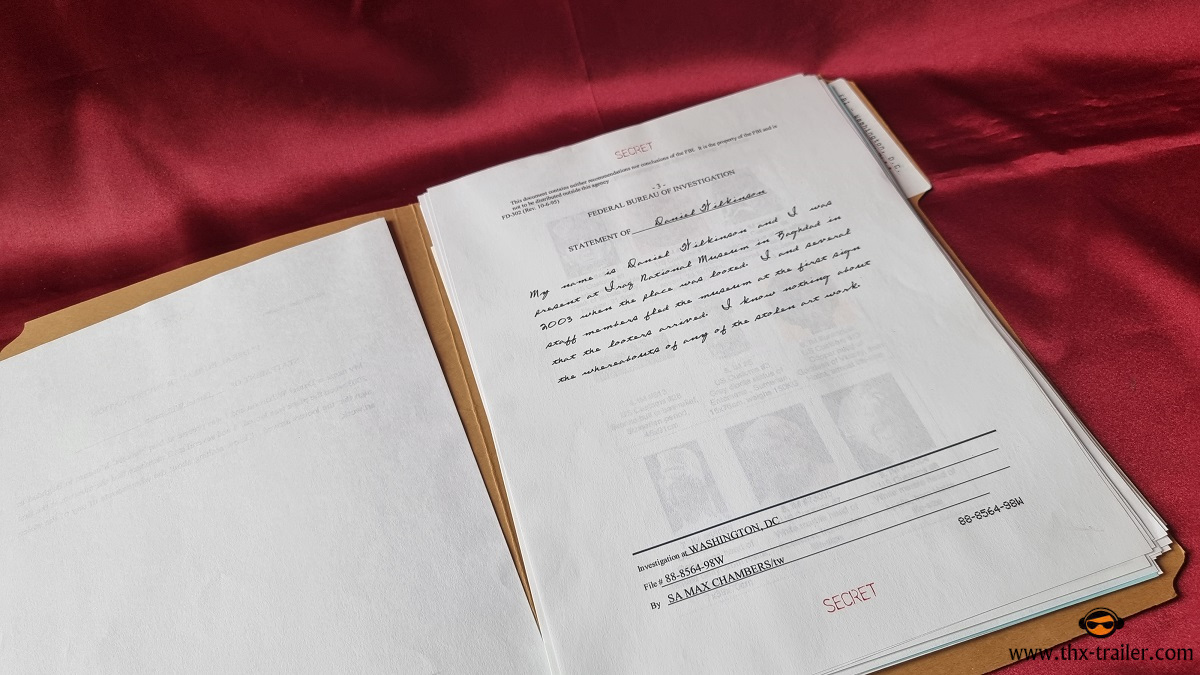 SECRET
This document contains neither recommendations nor conclusions of the FBI. It is the property of the FBI and is
not to be distributed outside this agency
FD-302 (Rev. 10-6-95)
- 3 -
FEDERAL BUREAU OF INVESTIGATION
STATEMENT OF Daniel Wilkinson
My name is Daniel Wilkinson and I was
present at Iraq National Museum in Baghdad in
2003 when the place was looted. I and several
staff members fled the museum at the first sign
that the looters arrived. I know nothing about
the whereabouts of any of the stolen art work.
Investigation at WASHINGTON, DC
File # 88-8564-98W
88-8564-98W
By SA MAX CHAMBERS/tw
SECRET
www.thx-trailer.com